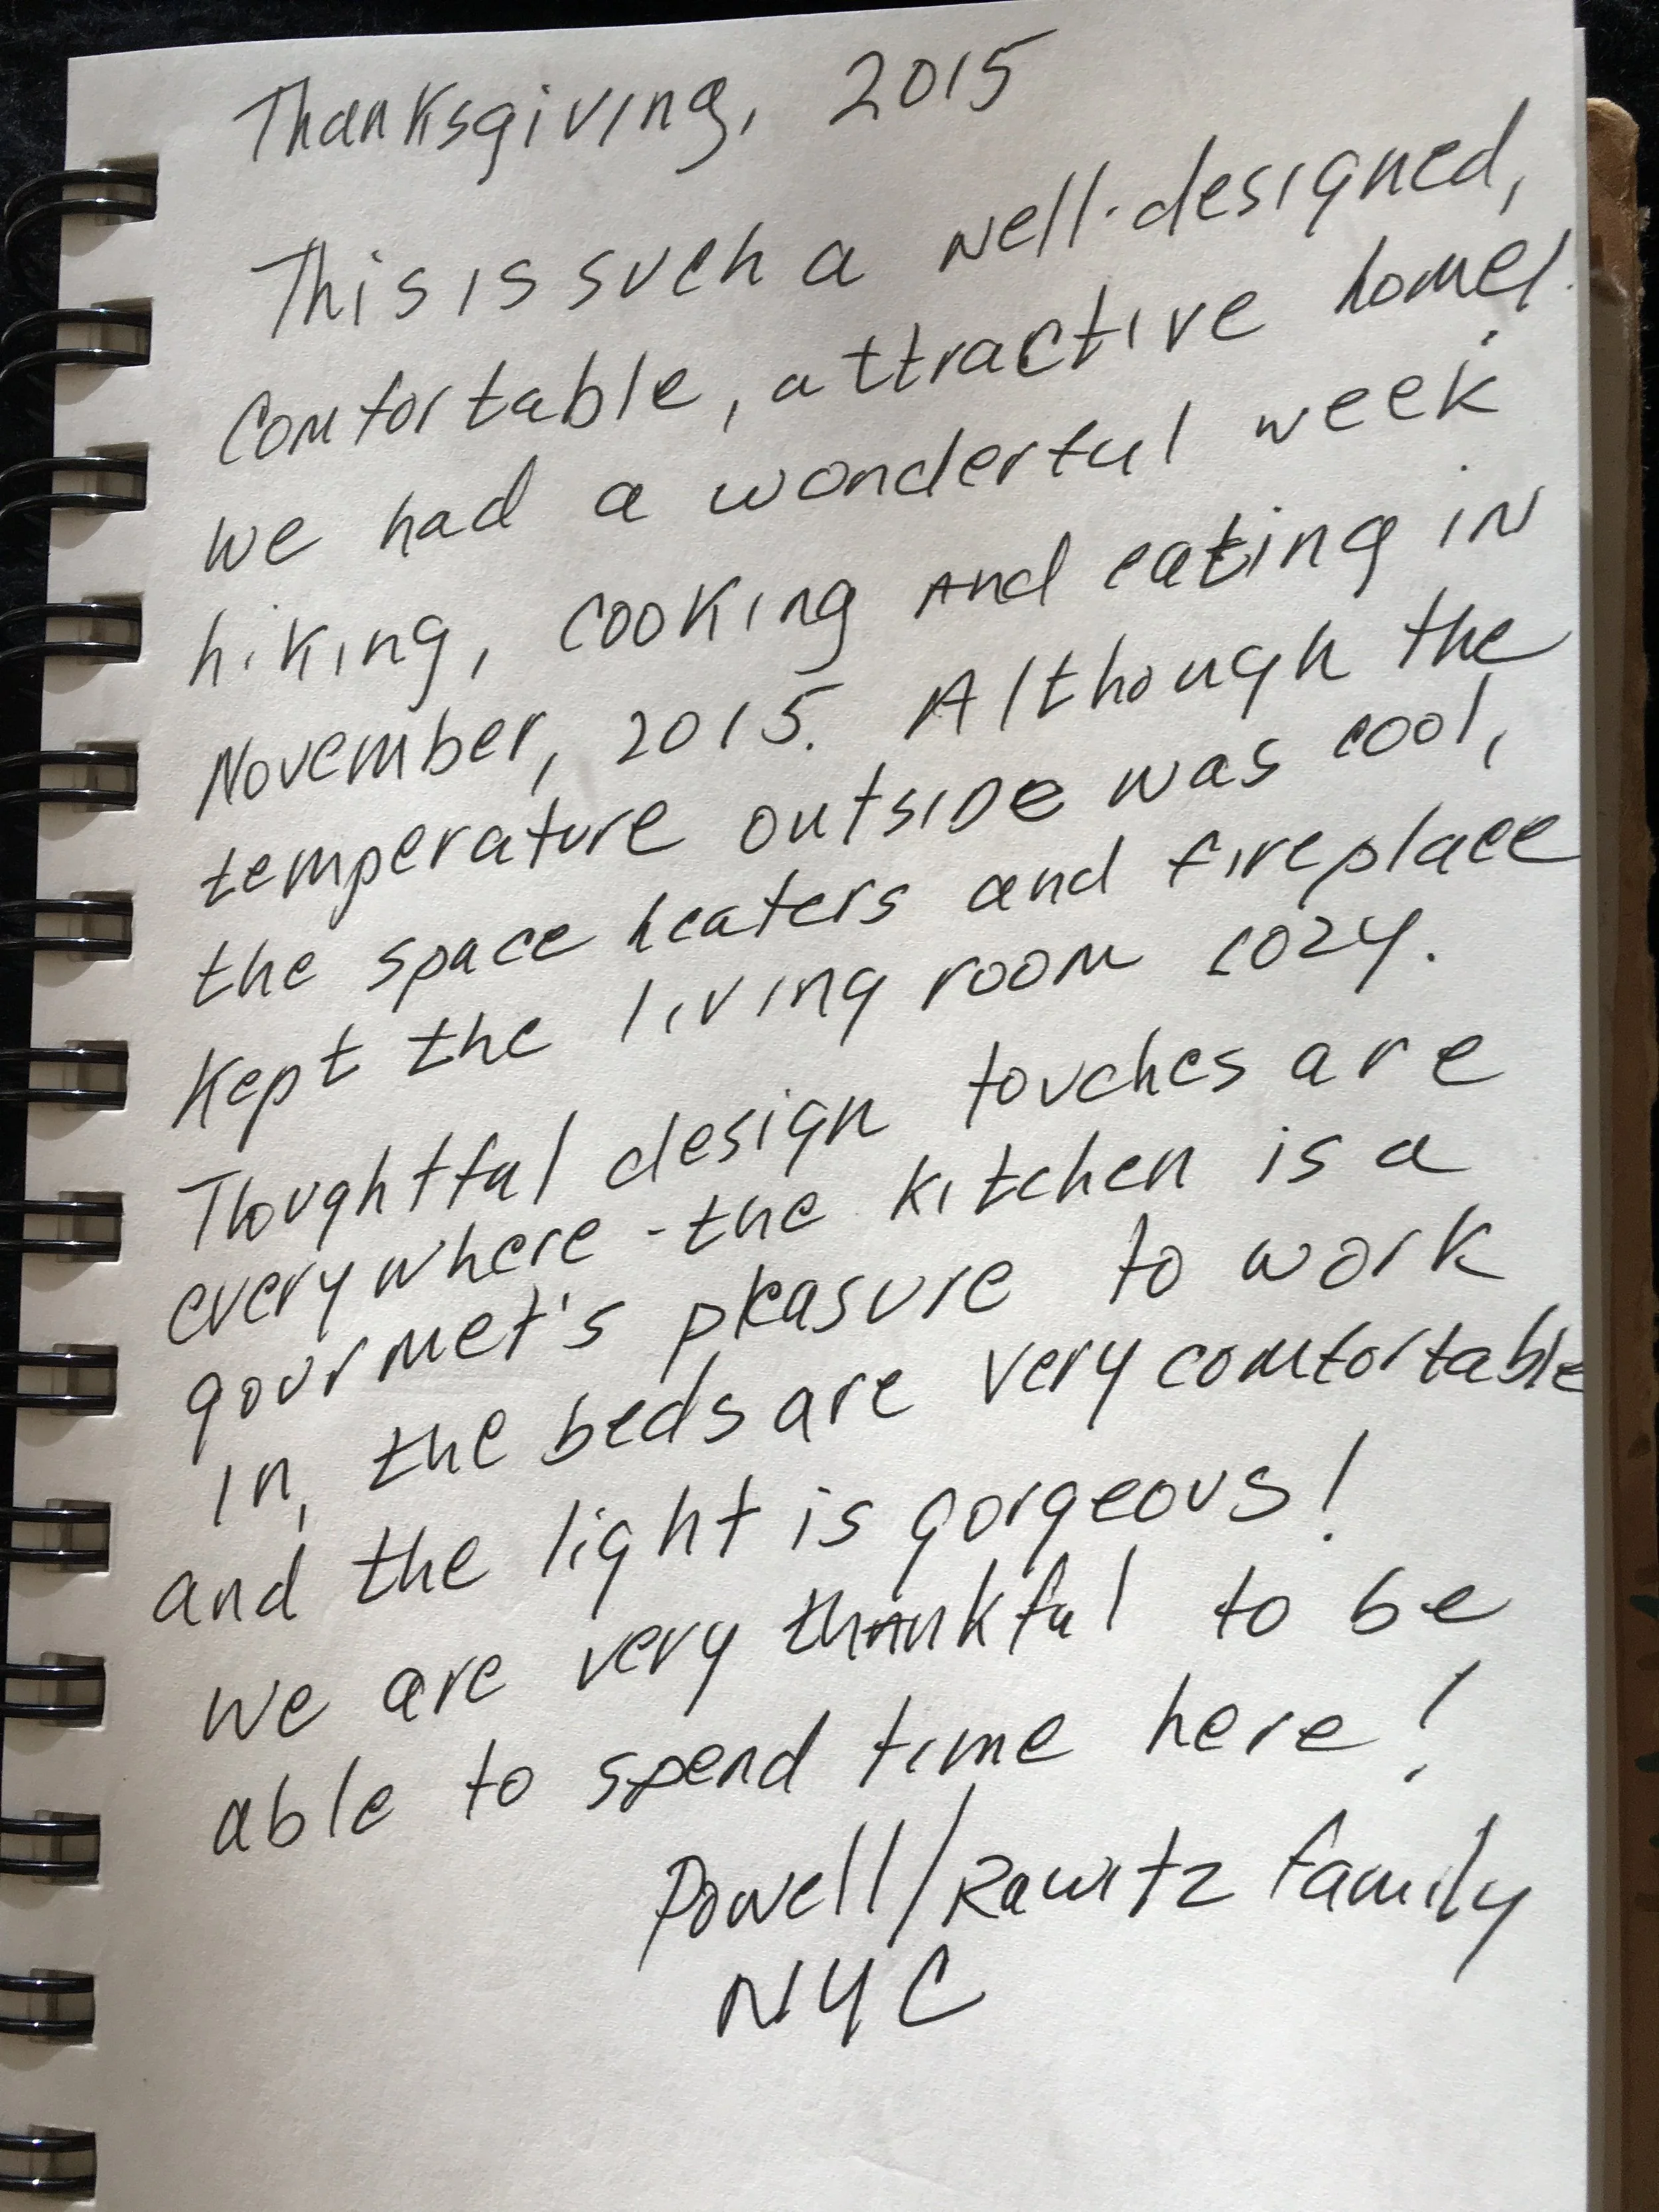 Thanksgiving, 2015
This is such a well-designed,
comfortable, attractive home!
We had a wonderful week
hiking, cooking and eating in
November, 2015. Although the
temperature outside was cool,
the space heaters and fireplace
kept the living room cozy.
Thoughtful design touches are
everywhere - the kitchen is a
gourmet's pleasure to work
in, the beds are very comfortable
and the light is gorgeous!
We are very thankful to be
able to spend time here!
Powell/Rawitz family
NYC